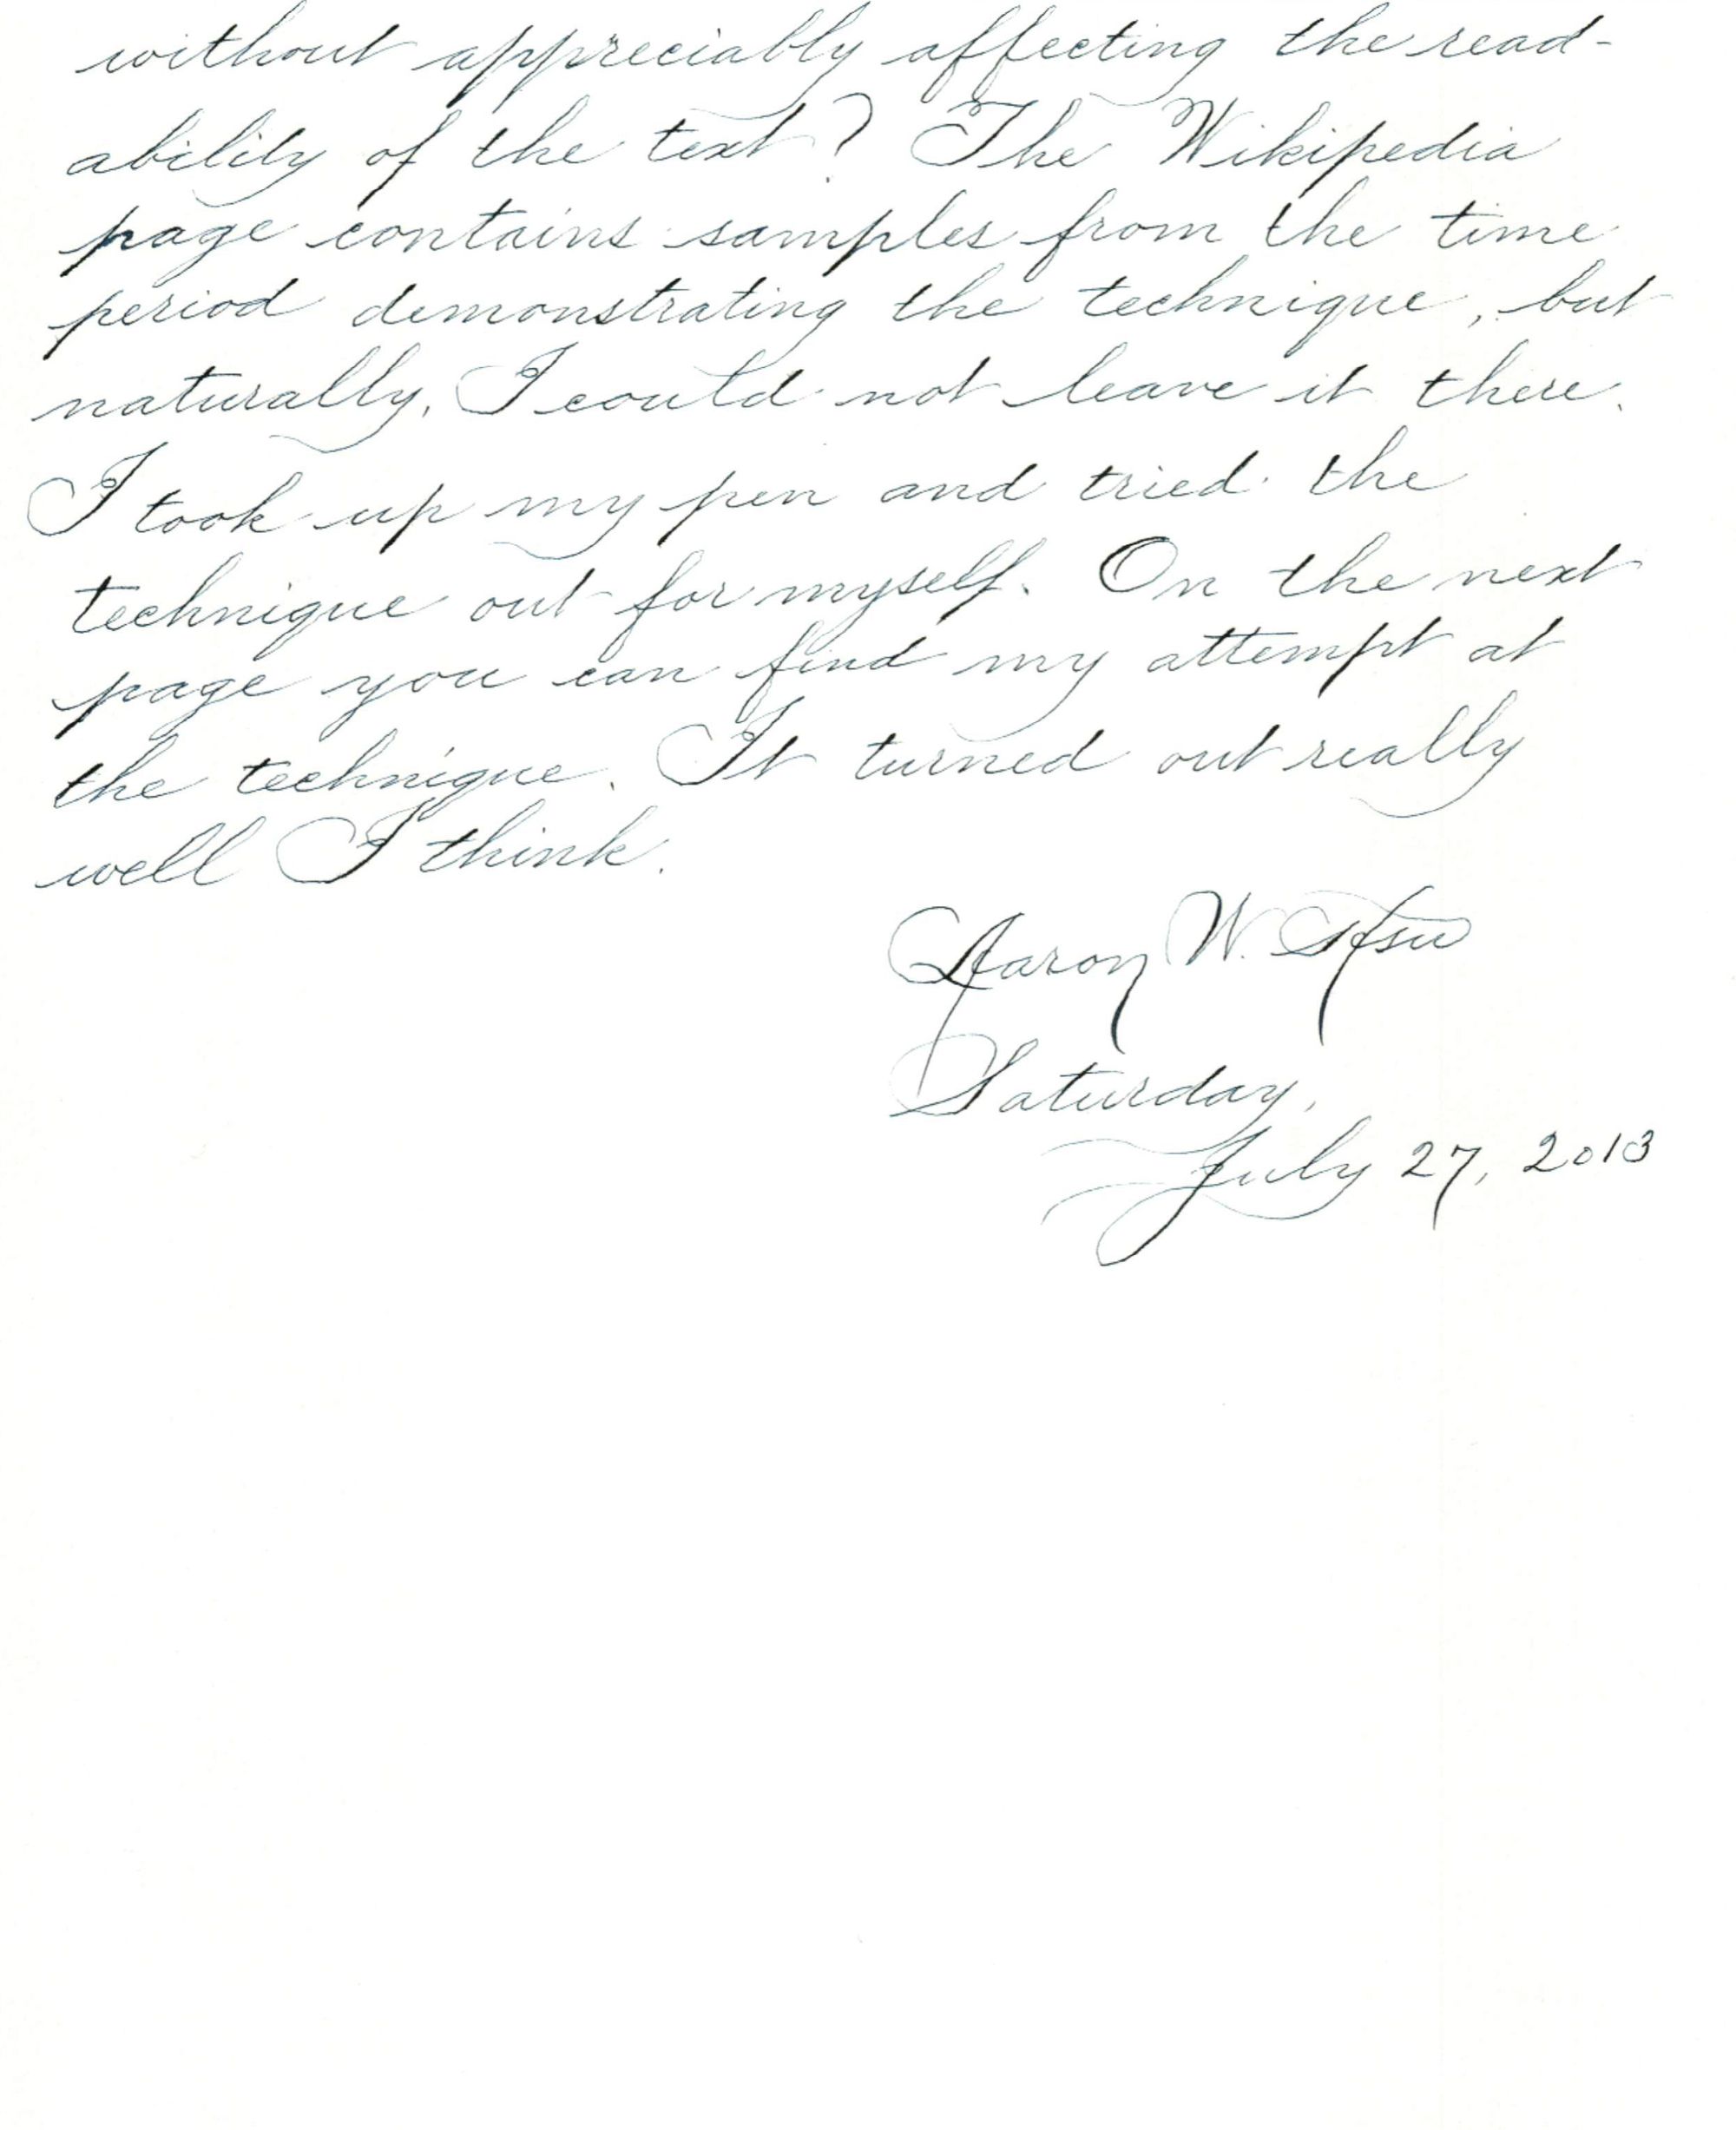 without appreciably affecting the read-
ability of the text? The Wikipedia
page contains samples from the time
period demonstrating the technique, but
naturally, I could not leave it there.
I took up my pen and tried the
technique out for myself. On the next
page you can find my attempt at
the technique. It turned out really
well I think.
Aaron W. Hsu
Saturday,
July 27, 2013